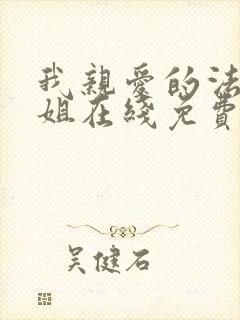 我親愛的法
姐在綫免費
吴健石